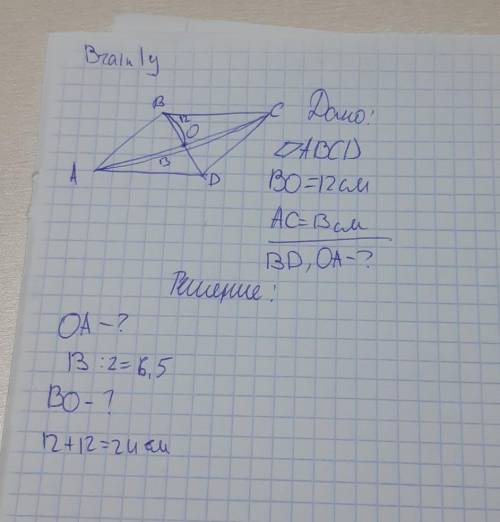 Brainly
B
12
C
O
13
A
D
Дано:
▱ABCD
BO=12см
AC=13см
BD, OA-?
Решение:
OA-?
13:2=6,5
BO-?
12+12=24см